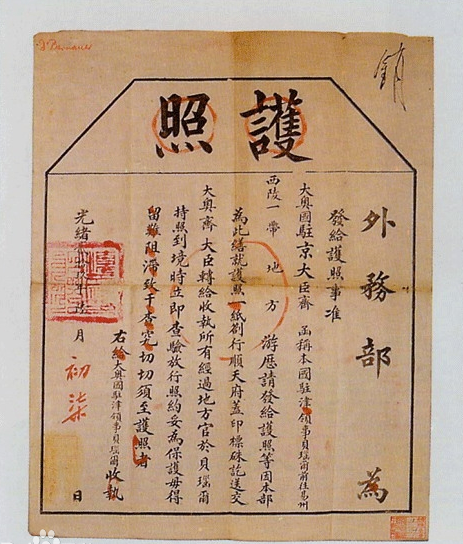 護照
外務部 為
發給護照事准
大奧國駐京大臣齊 函稱本國駐津領事貝瑙爾前往易州
西陵一帶地方 游歷請發給護照等因本部
為此繕就護照一紙劄行順天府蓋印標硃訖送交
大奧齊大臣轉給收執所有經過地方官於貝瑙爾
持照到境時立即查驗放行照約妥為保護毋得
留難阻滯致干查究切切須至護照者
右給大奧國駐津領事貝瑙爾收執
光緒 月初柒日
銷